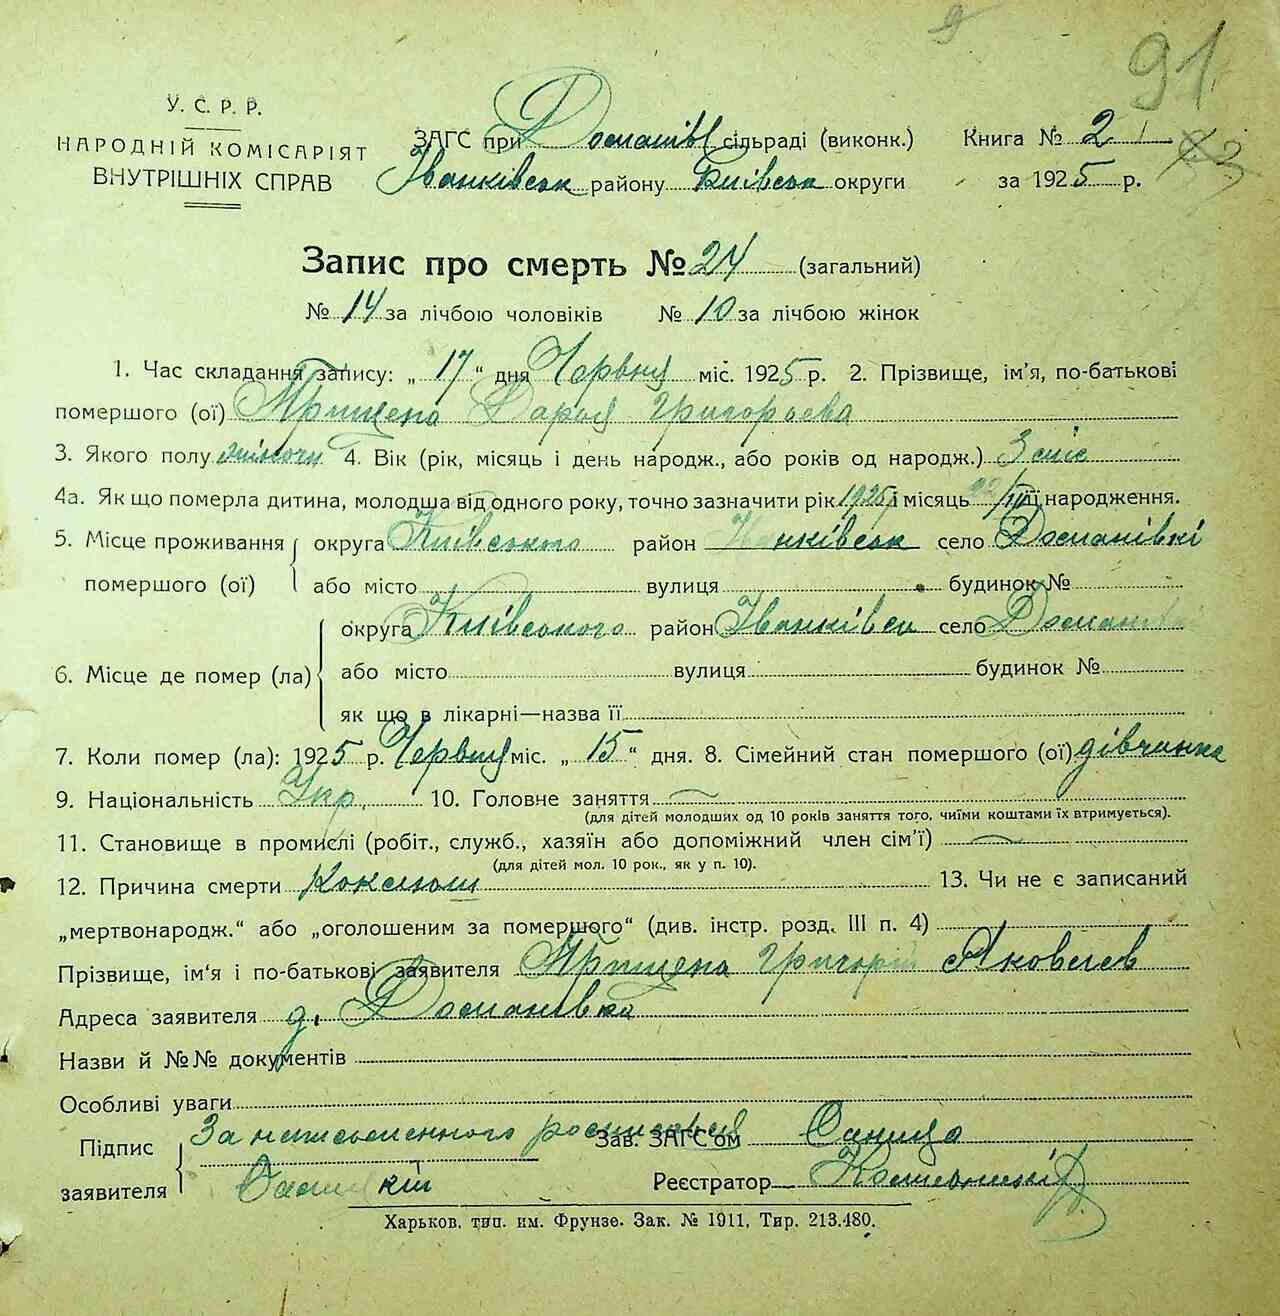 91
У. С. Р. Р.
НАРОДНІЙ КОМІСАРІЯТ
ВНУТРІШНІХ СПРАВ
ЗАГС при сільраді (виконк.) Книга № 2
Іванківськ району Київськ округи за 1925 р.
Запис про смерть № 24 (загальний)
№ 14 за лічбою чоловіків № 10 за лічбою жінок
1. Час складання запису: „ 17 “ дня Червня міс. 1925 р. 2. Прізвище, ім'я, по-батькові
помершого (ої) Дарья Григорьева
3. Якого полу жіночи 4. Вік (рік, місяць і день народж., або років од народж.) 3 міс
4а. Як що померла дитина, молодша від одного року, точно зазначити рік 1925 і місяць її народження.
5. Місце проживання помершого (ої) округа Київського район Іванківськ село
або місто вулиця будинок №
6. Місце де помер (ла) округа Київського район Іванківськ село
або місто вулиця будинок №
як що в лікарні—назва її
7. Коли помер (ла): 1925 р. Червня міс. „ 15 “ дня. 8. Сімейний стан помершого (ої) дівчинка
9. Національність Укр. 10. Головне заняття
(для дітей молодших од 10 років заняття того, чиїми коштами їх втримується).
11. Становище в промислі (робіт., служб., хазяїн або допоміжний член сім'ї)
(для дітей мол. 10 рок., як у п. 10).
12. Причина смерти Коклюш 13. Чи не є записаний
„мертвонародж.“ або „оголошеним за помершого“ (див. інстр. розд. III п. 4)
Прізвище, ім'я і по-батькові заявителя Григорій Яковлев
Адреса заявителя
Назви й №№ документів
Особливі уваги
Підпис заявителя За неписьменного росписався Зав. ЗАГС'ом
Реєстратор
Харьков, тип. им. Фрунзе. Зак. № 1911, Тир. 213.480.